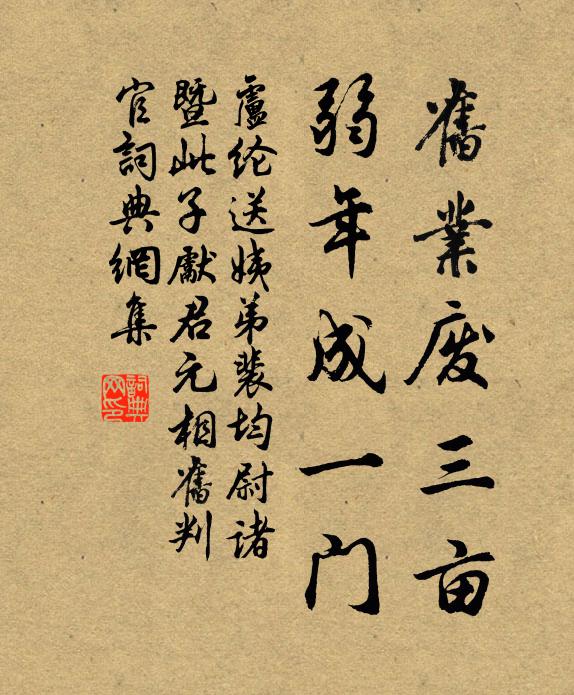 舊業废三亩
弱年成一门
盧纶送姨弟裴均尉诸
暨此子獻君元相舊判
官詞典網集
詞典
网印